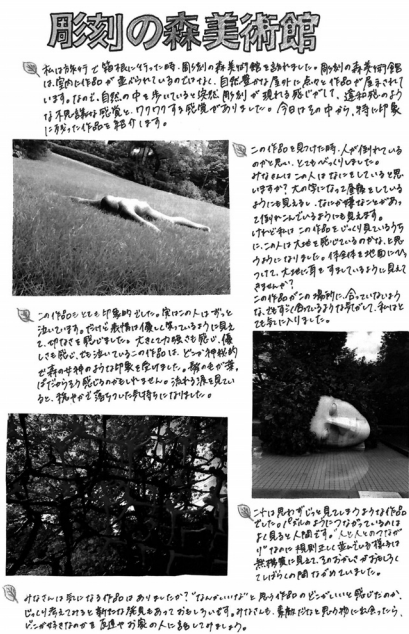 彫刻の森美術館
私は家族で箱根に行った時、彫刻の森美術館を訪れました。彫刻の森美術館
は、室内に作品が並べられているのではなく、自然豊かな屋外に点々と作品が展示されて
います。なので、自然の中を歩いていると突然彫刻が現れる感じがして、違和感のよう
な不思議な感覚と、ワクワクする感覚がありました。今日はその中から、特に印象
に残った作品を紹介します。
この作品を見つけた時、人が倒れている
のかと思い、とてもびっくりしました。
みなさんはこの人はなにをしていると思
いますか？大の字になって昼寝をしている
ようにも見えるし、なにか嫌なことがあっ
て倒れこんでいるようにも見えます。
けれど私はこの作品をじっくり見ているうち
に、この人は大地を感じているのかな、と思
うようになりました。体全体を地面にひっ
つけて、大地に耳をすましているように見えて
きませんか？
この作品がこの場所に、合っていないよう
な、でもすごく合っているような気がして、私はと
ても気に入りました。
この作品もとても印象的でした。実はこの人はずっと
泣いています。だけど表情は優しく笑っているように見え
て、切なさを感じました。大きくて力強さも感じ、優
しさも感じ、でも泣いているこの作品は、どこか神秘的
で森の女神のような印象を受けました。髪の毛が葉っ
ぱだからそう感じるのかもしれません。流れる涙を見てい
ると、穏やかで落ちついた気持ちになりました。
これは思わずじっと見てしまうような作品
でした。パズルのようにつながっているのは
よく見ると人間です。“人と人とのつながり
”なのに規則正しく並んでいる様子は
無機質に見えて、そのおかしさがおもしろく
てしばらくの間ながめていました。
みなさんは気になる作品はありましたか？“なんかいいな”と思う作品のどこがいいと感じたのか、
じっくり考えてみると新たな発見もあっておもしろいです。みなさんも、素敵だなと思う物に出会ったら、
どこが好きなのかを友達やお家の人に話してみましょう。